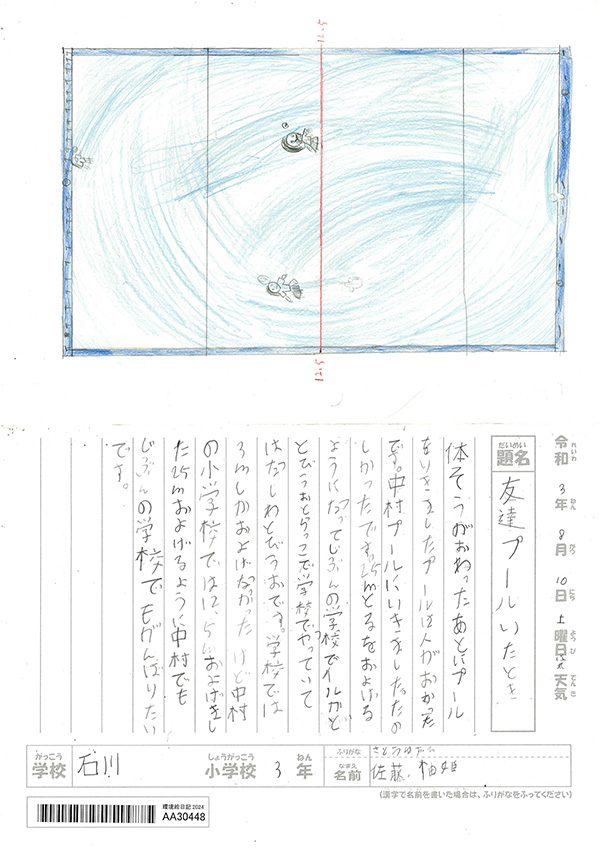 12.5
12.5
令和3年8月10日土曜日天気
れいわ ねん がつ にち ようび てんき
だいめい
題名
友達プールいたとき
体そうがおわったあとにプール
をいきましたプールは人がおかった
です。中村プールにいきましたたの
しかったです。25mとるをおよげる
ようになってじぶんの学校でイルカと
とびうおとらっこで学校でやっていて
はたしわとびうおです。学校では
3mしかおよげなかったけど中村
の小学校では12、5mおよげまし
た25mおよげるように中村でも
じぶんの学校でもがんばりたい
です。
がっこう
学校
石川
しょうがっこう
小学校
3
ねん
年
ふりがな
さとう
なまえ
名前
佐藤 柚姫
(漢字で名前を書いた場合は、ふりがなをふってください)
環境絵日記2024
AA30448